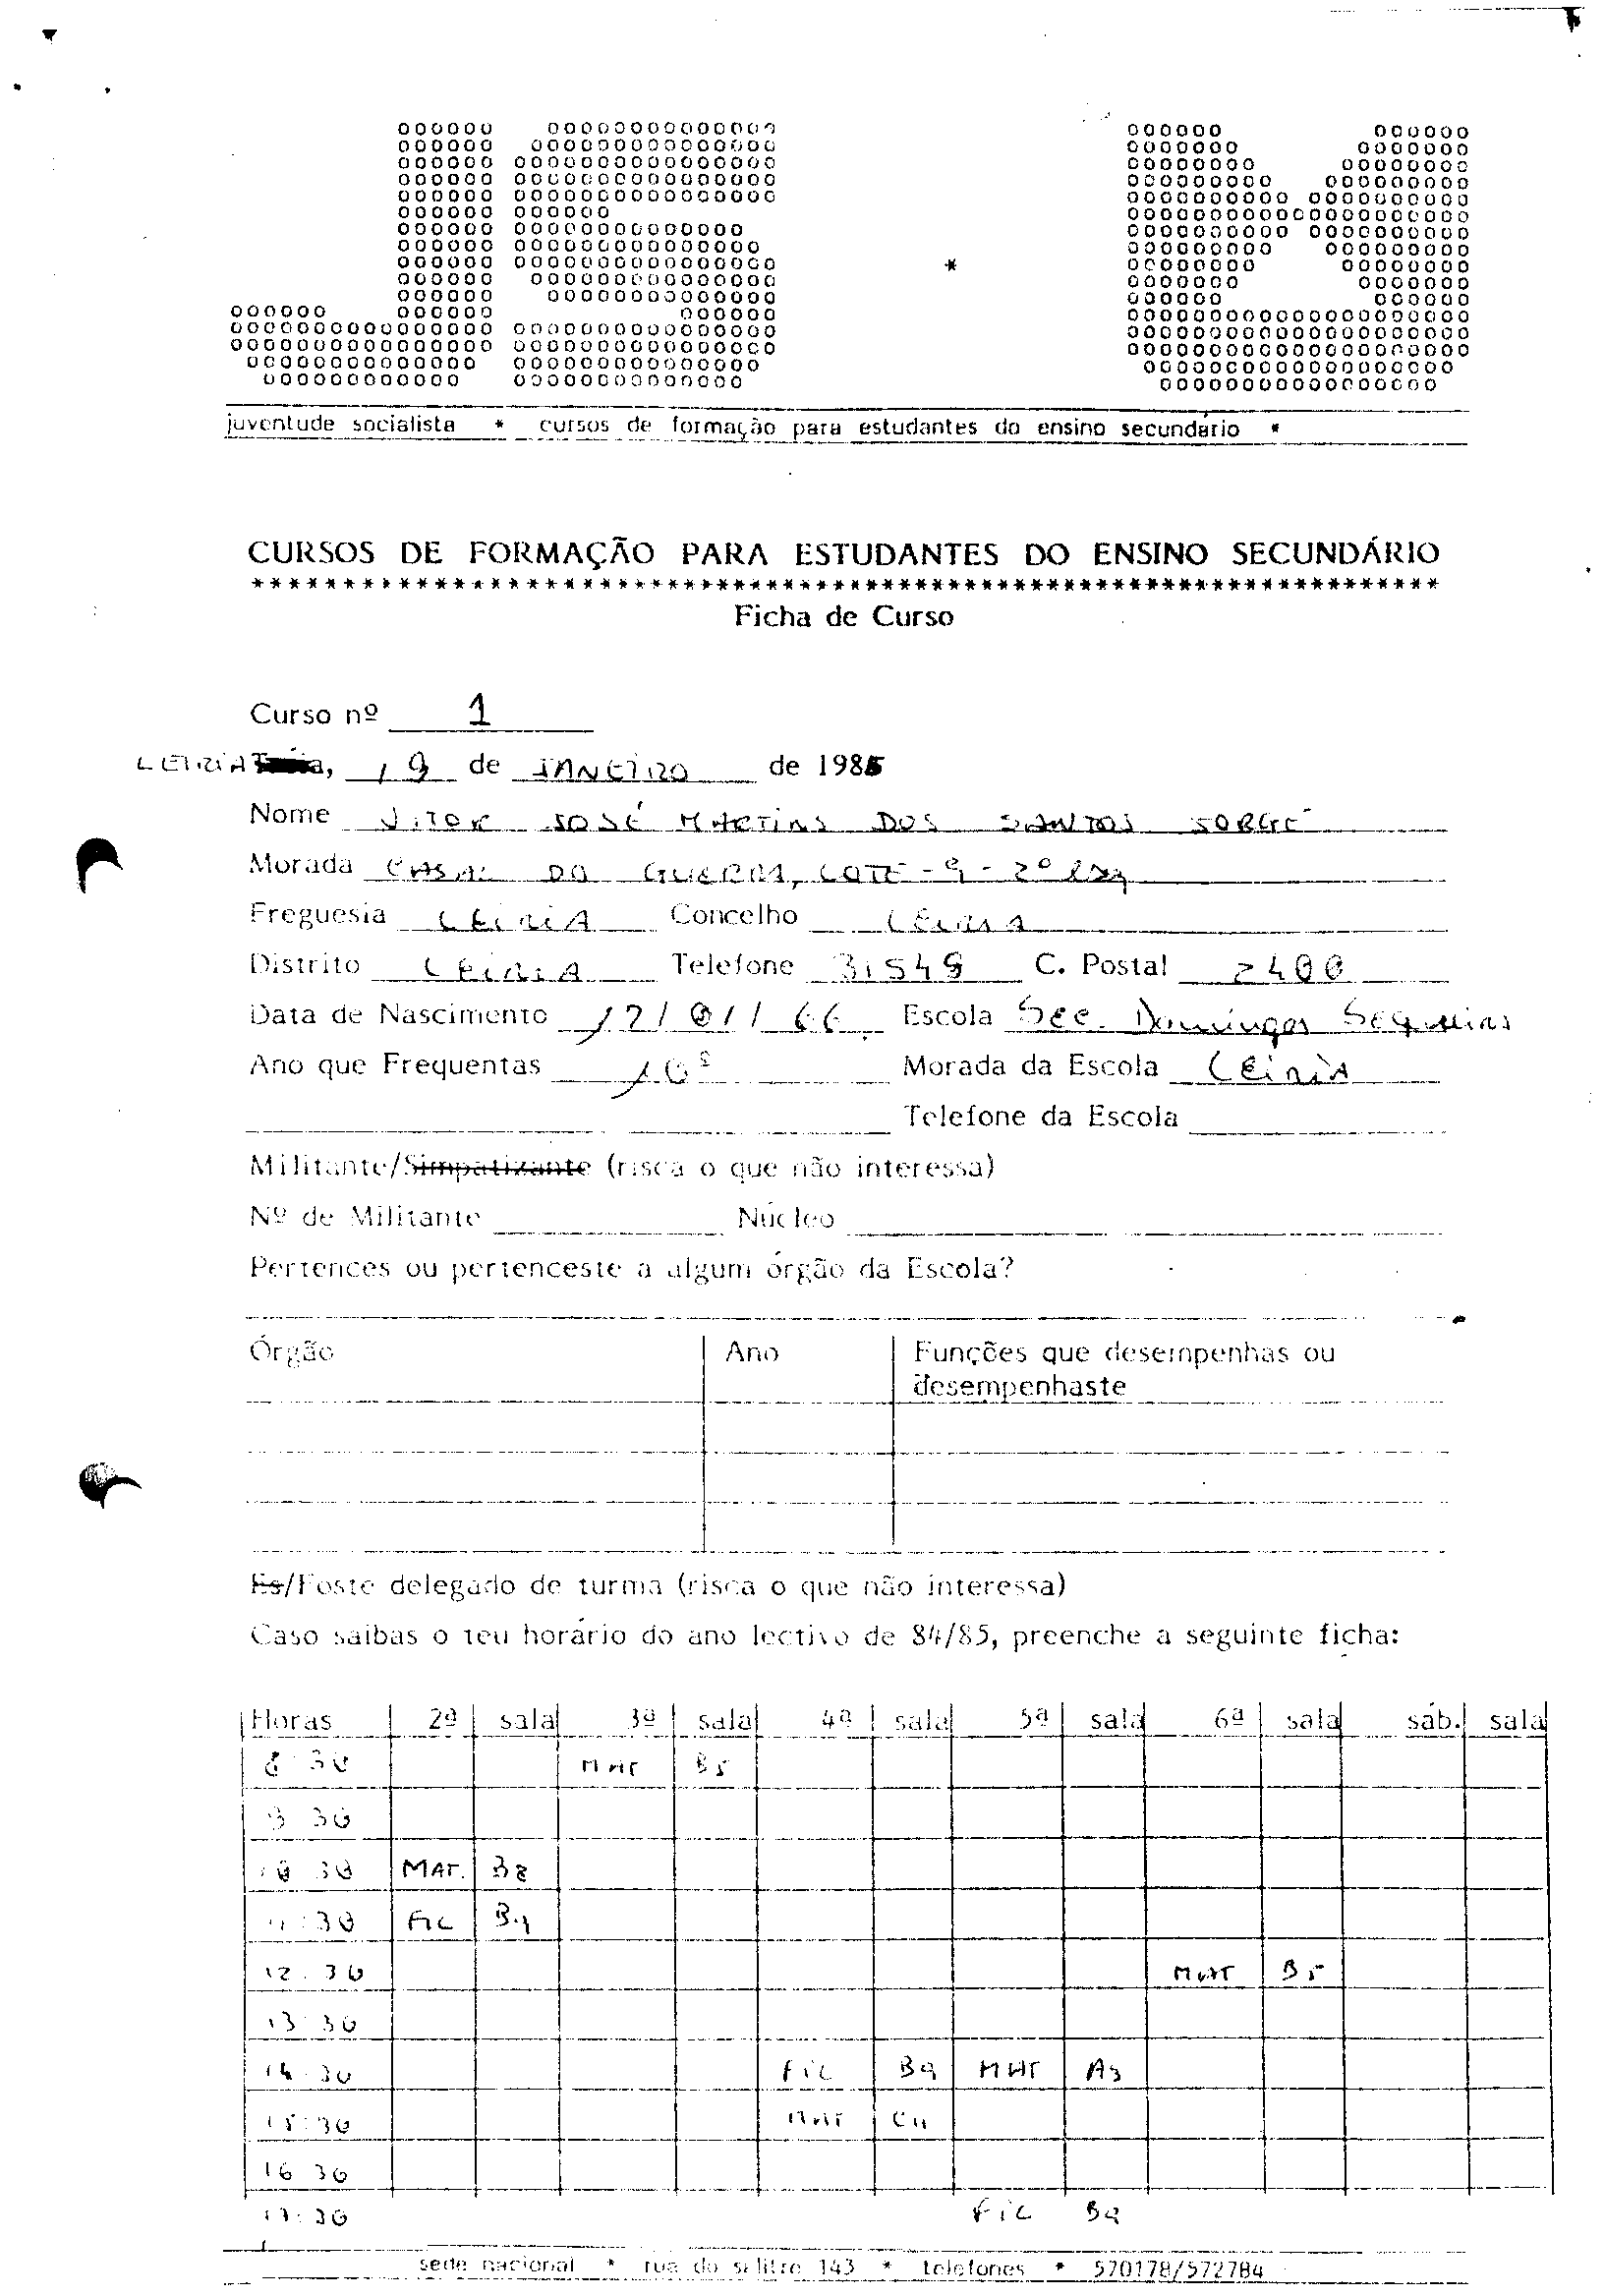 JS * M
juventude socialista * cursos de formação para estudantes do ensino secundário *
CURSOS DE FORMAÇÃO PARA ESTUDANTES DO ENSINO SECUNDÁRIO
*****************************************************************
Ficha de Curso
Curso nº 1
LEIRIA, 19 de JANEIRO de 1985
Nome VITOR JOSÉ MARTINS DOS SANTOS JORGE
Morada CASAL DO GUERRA, LOTE - 9 - 2º
Freguesia LEIRIA Concelho LEIRIA
Distrito LEIRIA Telefone 31549 C. Postal 2400
Data de Nascimento 17/01/66 Escola Sec. Domingos Sequeira
Ano que Frequentas 10º Morada da Escola LEIRIA
Telefone da Escola
Militante/Simpatizante (risca o que não interessa)
Nº de Militante Núcleo
Pertences ou pertenceste a algum órgão da Escola?
Órgão Ano Funções que desempenhas ou
desempenhaste
És/Foste delegado de turma (risca o que não interessa)
Caso saibas o teu horário do ano lectivo de 84/85, preenche a seguinte ficha:
Horas 2ª sala 3ª sala 4ª sala 5ª sala 6ª sala sáb. sala
8:30 MAT B5
9 30
10 30 MAT. B8
11:30 FIL B9
12.30 MAT B5
13:30
14.30 FIL B9 MAT A3
15:30 MAT C4
16 30
17:30 FIL B9
sede nacional * rua do salitre 143 * telefones * 570178/572784